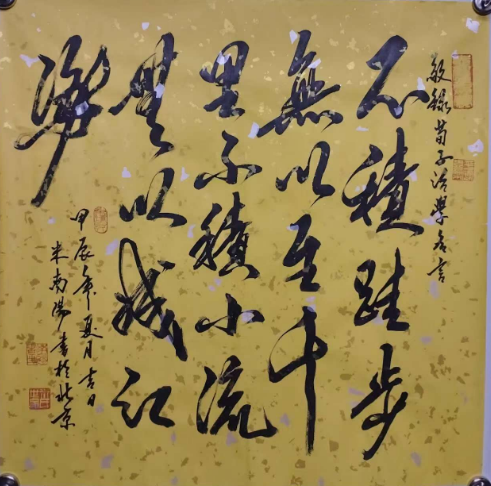 敬錄荀子治學名言
不積跬步
無以至千
里不積小流
無以成江
海
甲辰年夏月吉日
米南陽書於北京